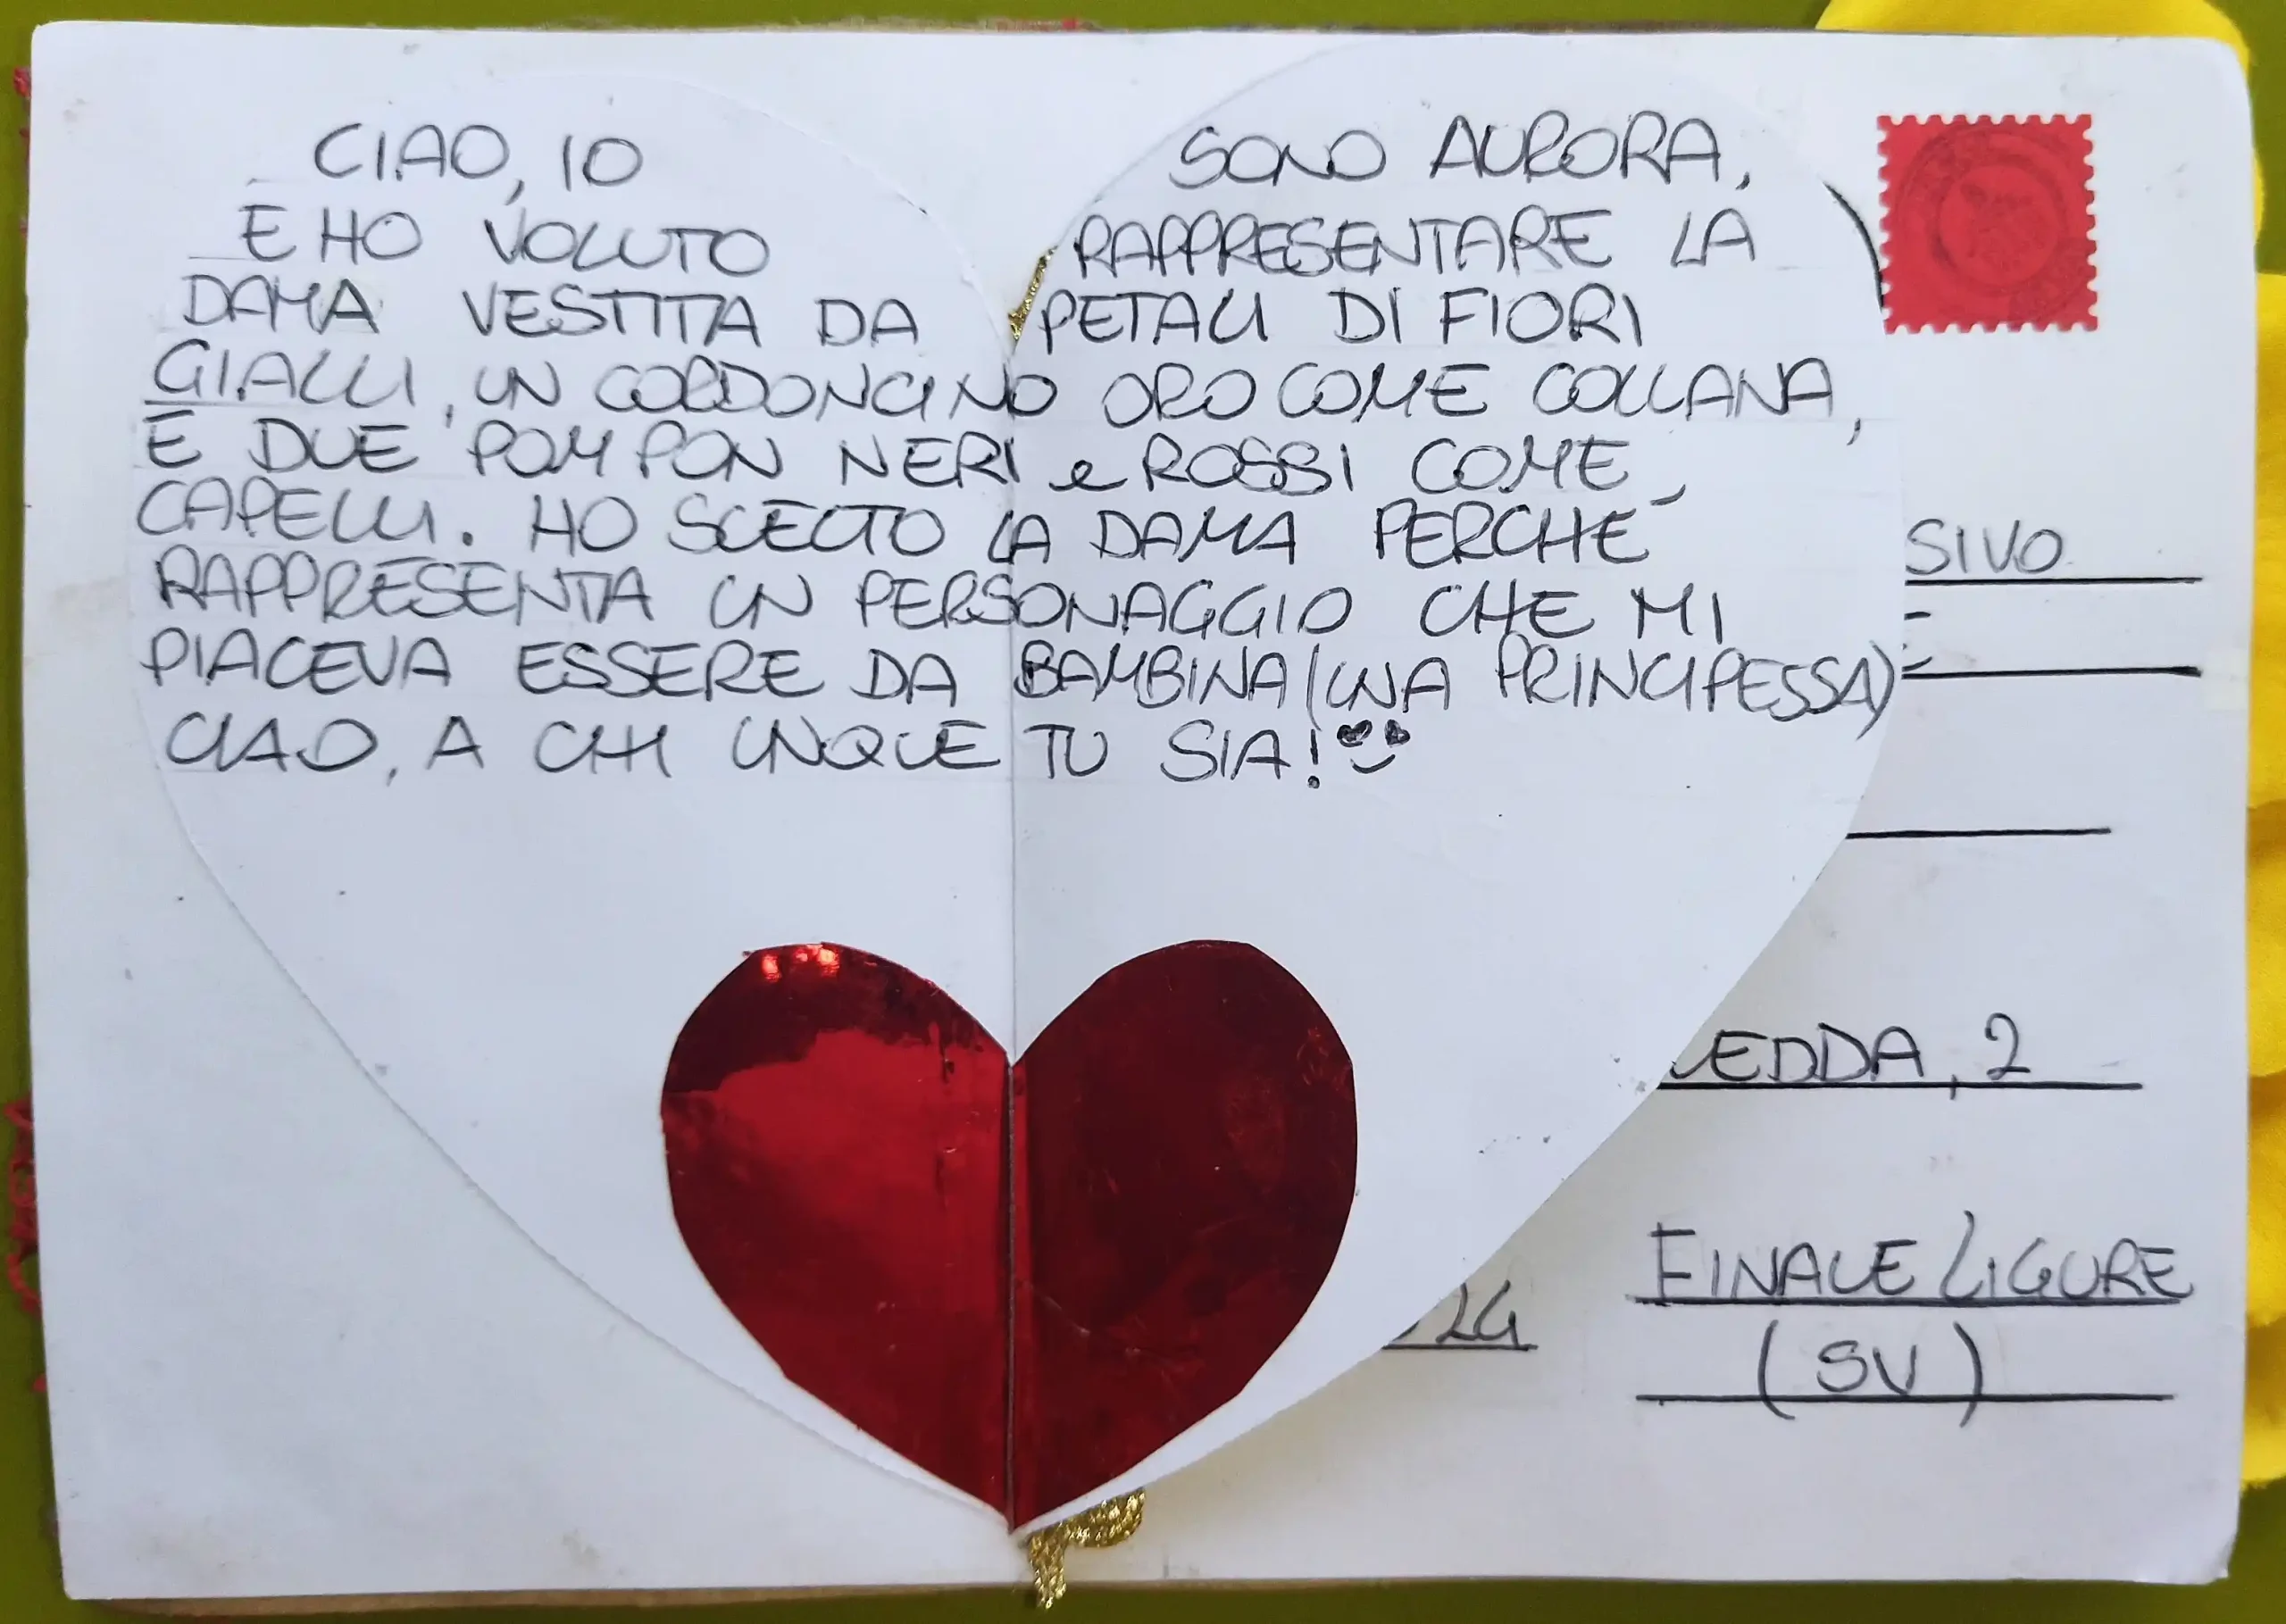 CIAO, IO SONO AURORA,
E HO VOLUTO RAPPRESENTARE LA
DAMA VESTITA DA PETALI DI FIORI
GIALLI, UN CORDONCINO ORO COME COLLANA,
E DUE POM PON NERI e ROSSI COME
CAPELLI. HO SCELTO LA DAMA PERCHÉ
RAPPRESENTA UN PERSONAGGIO CHE MI
PIACEVA ESSERE DA BAMBINA (UNA PRINCIPESSA)
CIAO, A CHI UNQUE TU SIA!
SIVO
EDDA, 2
FINALE LIGURE
24
(SV)